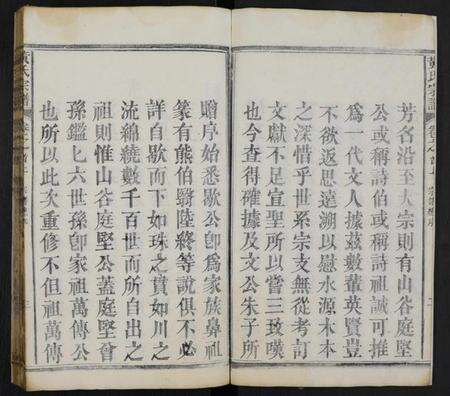 黃氏宗譜
芳名沿至大宗則有山谷庭堅
公或稱詩伯或稱詩祖誠可推
爲一代文人據茲數輩英賢豈
不欲返思遠溯以慰水源木本
之深惜乎世系宗支無從考訂
文獻不足宣聖所以嘗三致嘆
也今查得確據及文公朱子所
贈序始悉歇公卽爲家族鼻祖
篆有熊伯翳陸終等說俱不必
詳自歇而下如珠之貫如川之
流綿綿繞數千百世而所自出之
祖則惟山谷庭堅公蓋庭堅曾
孫鑑公六世孫卽家祖萬傳公
也所以此次重修不但祖萬傳
黃氏宗譜